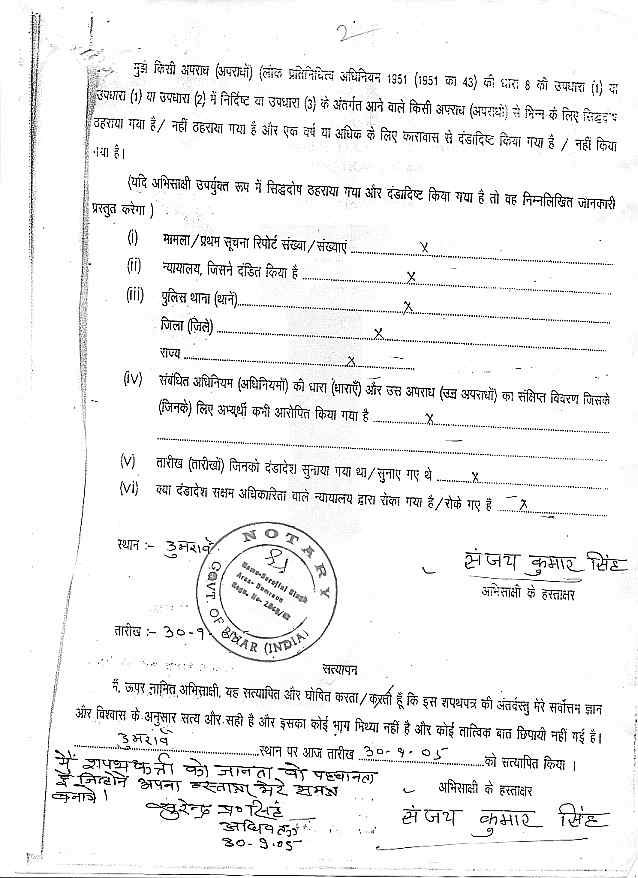 2
मुझे किसी अपराध (अपराधों) (लोक प्रतिनिधित्व अधिनियम 1951 (1951 का 43) की धारा 8 की उपधारा (1) या
उपधारा (1) या उपधारा (2) में निर्दिष्ट या उपधारा (3) के अंतर्गत आने वाले किसी अपराध (अपराधों) से भिन्न के लिए सिद्धदोष
ठहराया गया है / नहीं ठहराया गया है और एक वर्ष या अधिक के लिए कारावास से दंडादिष्ट किया गया है / नहीं किया
गया है।
(यदि अभिसाक्षी उपर्युक्त रूप में सिद्धदोष ठहराया गया और दंडादिष्ट किया गया है तो वह निम्नलिखित जानकारी
प्रस्तुत करेगा )
(i) मामला / प्रथम सूचना रिपोर्ट संख्या / संख्याएं x
(ii) न्यायालय, जिसने दंडित किया है x
(iii) पुलिस थाना (थानें) x
जिला (जिले) x
राज्य x
(iv) संबंधित अधिनियम (अधिनियमों) की धारा (धाराएँ) और उस अपराध (उन अपराधों) का संक्षिप्त विवरण जिसके
(जिनके) लिए अभ्यर्थी कभी आरोपित किया गया है x
(v) तारीख (तारीखों) जिनको दंडादेश सुनाया गया था / सुनाए गए थे x
(vi) क्या दंडादेश सक्षम अधिकारिता वाले न्यायालय द्वारा रोका गया है / रोके गए है x
स्थान :- डुमरांव
NOTARY
GOVT. OF BIHAR (INDIA)
संजय कुमार सिंह
अभिसाक्षी के हस्ताक्षर
तारीख :- 30-9
सत्यापन
मैं, ऊपर नामित अभिसाक्षी, यह सत्यापित और घोषित करता / करती हूँ कि इस शपथपत्र की अंतर्वस्तु मेरे सर्वोत्तम ज्ञान
और विश्वास के अनुसार सत्य और सही है और इसका कोई भाग मिथ्या नहीं है और कोई तात्विक बात छिपायी नहीं गई है।
डुमरांव स्थान पर आज तारीख 30-9-05 को सत्यापित किया ।
मैं शपथकर्त्ता को जानता वो पहचानता
हूँ जिन्होंने अपना हस्ताक्षर मेरे समक्ष
बनाये ।
सुरेन्द्र प्र० सिंह
अधिवक्ता
30-9-05
अभिसाक्षी के हस्ताक्षर
संजय कुमार सिंह